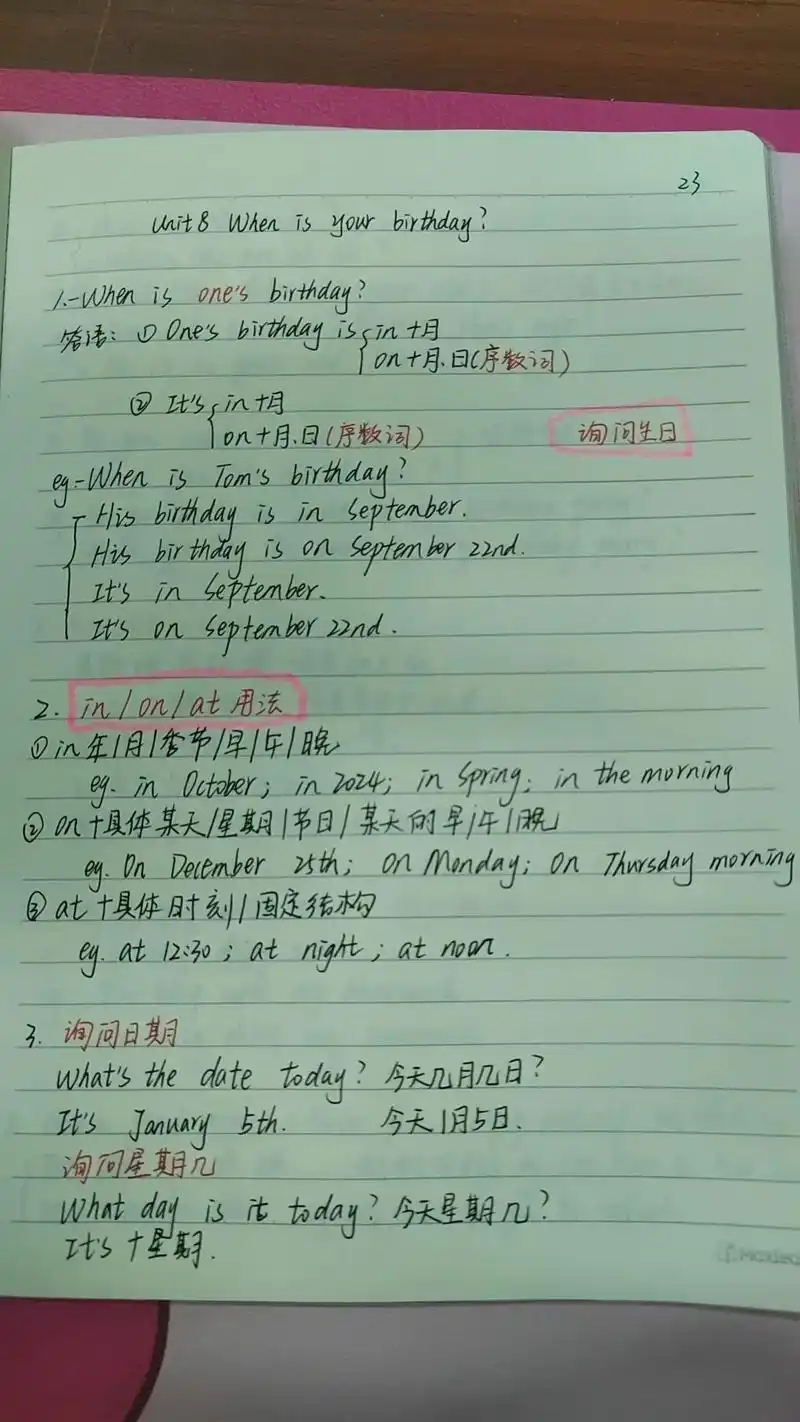 23
Unit 8 When is your birthday?
1.-When is one's birthday?
答语: ① One's birthday is { in +月
on +月.日(序数词)
② It's { in +月
on +月.日(序数词) 询问生日
eg.-When is Tom's birthday?
- His birthday is in September.
His birthday is on September 22nd.
It's in September.
It's on September 22nd.
2. in/on/at用法
① in 年/月/季节/早/午/晚
eg. in October; in 2024; in Spring; in the morning
② on +具体某天/星期/节日/某天的早/午/晚
eg. On December 25th; on Monday; on Thursday morning
③ at +具体时刻/固定结构
eg. at 12:30; at night; at noon.
3. 询问日期
What's the date today? 今天几月几日?
It's January 5th. 今天1月5日.
询问星期几
What day is it today? 今天星期几?
It's +星期.